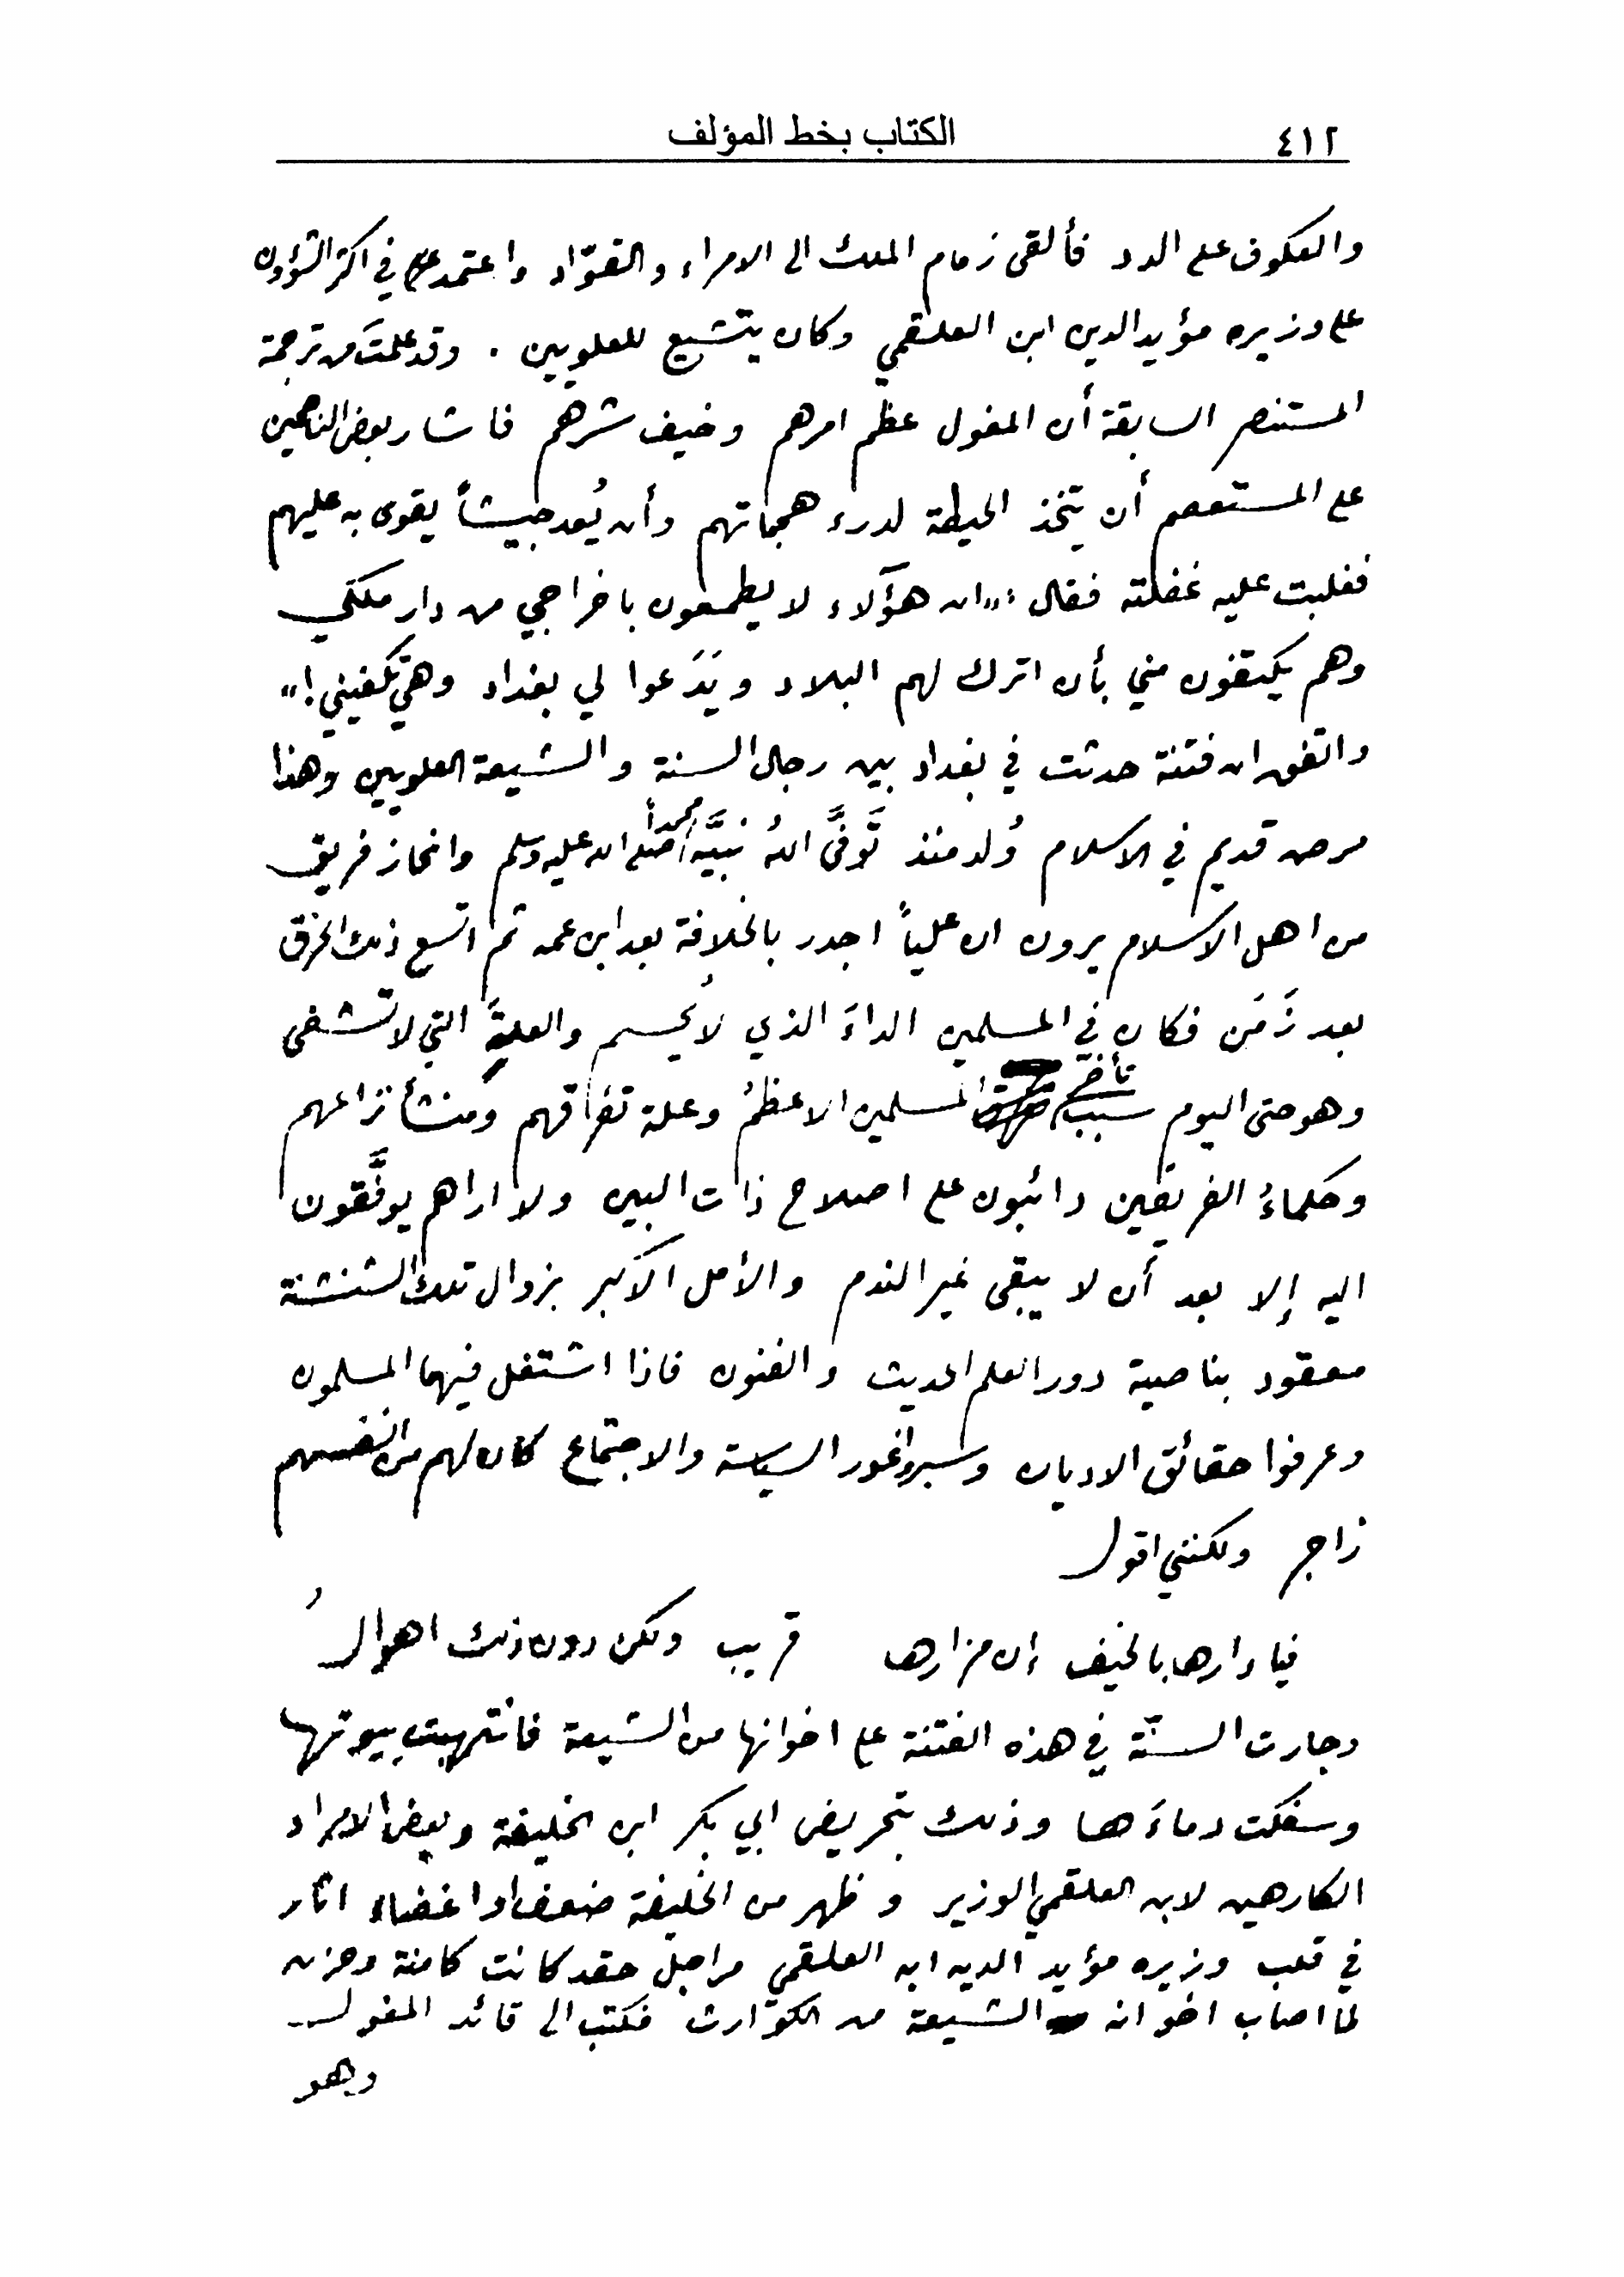 ٤١٢ الكتاب بخط المؤلف
والعكوف على الدد فألقى زمام الملك الى الامراء والقوّاد واعتمد في اكثر الشؤون
على وزيره مؤيد الدين ابن العلقمي وكان يتشيع للعلويين . وقد علمتَ من ترجمة
المستنصر السابقة أن المغول عظم امرهم وخيف شرهم فاشار بعض الناصحين
على المستعصم أن يتخذ الحيطة لدرء هجماتهم وأن يُعد جيشاً يقوى به عليهم
فغلبت عليه غفلته فقال : "ان هؤلاء لا يطمعون باخراجي من دار ملكي
وهم يكتفون مني بأن اترك لهم البلاد ويَدَعوا لي بغداد وهي تكفيني !"
واتفق ان فتنة حدثت في بغداد بين رجال السنة والشيعة العلويين وهذا
مرض قديم في الاسلام وُلد منذ تَوفَّى اللهُ نبيَّهُ محمداً صلى الله عليه وسلم وانحاز فريق
من اهل الاسلام يرون ان علياً اجدر بالخلافة بعد ابن عمه ثم اتسع ذلك الخرق
بعد زَمَن فكان في المسلمين الداءَ الذي لا يُحسم والعلةَ التي لا تشفى
وهو حتى اليوم سبب تأخر المسلمين الاعظمُ وعلة تفراقهم ومنشأ نزاعهم
وحكماءُ الفريقين دائبون على اصلاح ذات البين ولا اراهم يوفَّقون
اليه إلا بعد أن لا يبقى غير الندم والأمل الأكبر بزوال تلك الشنشنة
معقود بناصية دور العلم الحديث والفنون فاذا اشتغل فيهما المسلمون
وعرفوا حقائق الاديان وسبروا غور السياسة والاجتماع كان لهم من انفسهم
زاجر ولكنني اقول
فيا دارها بالخيف إن مزارها قريب ولكن دون ذلك اهوالُ
وجارت السنّة في هذه الفتنة على اخوانها من الشيعة فانتهبت بيوتها
وسفكت دماءَها وذلك بتحريض ابي بكر ابن الخليفة وبعض الامراء
الكارهين لابن العلقمي الوزير وظهر من الخليفة ضعف او اغضاء اثار
في قلب وزيره مؤيد الدين ابن العلقمي مراجل حقد كانت كامنة وحزن
لما اصاب اخوانه الشيعة من الكوّارث فكتب الى قائد المغول
وهو